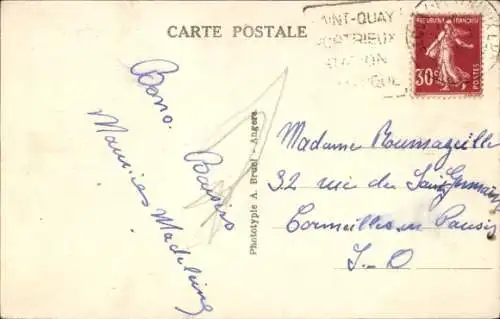 CARTE POSTALE
INT-QUAY
RTRIEUX
STATION
QUE
REPUBLIQUE FRANÇAISE
30c
POSTES
Bons
Baisers
Maurice Madeleine
Phototypie A. Bruel - Angers
Madame
32 rue de St Germain
Cormeilles en Parisis
S-O